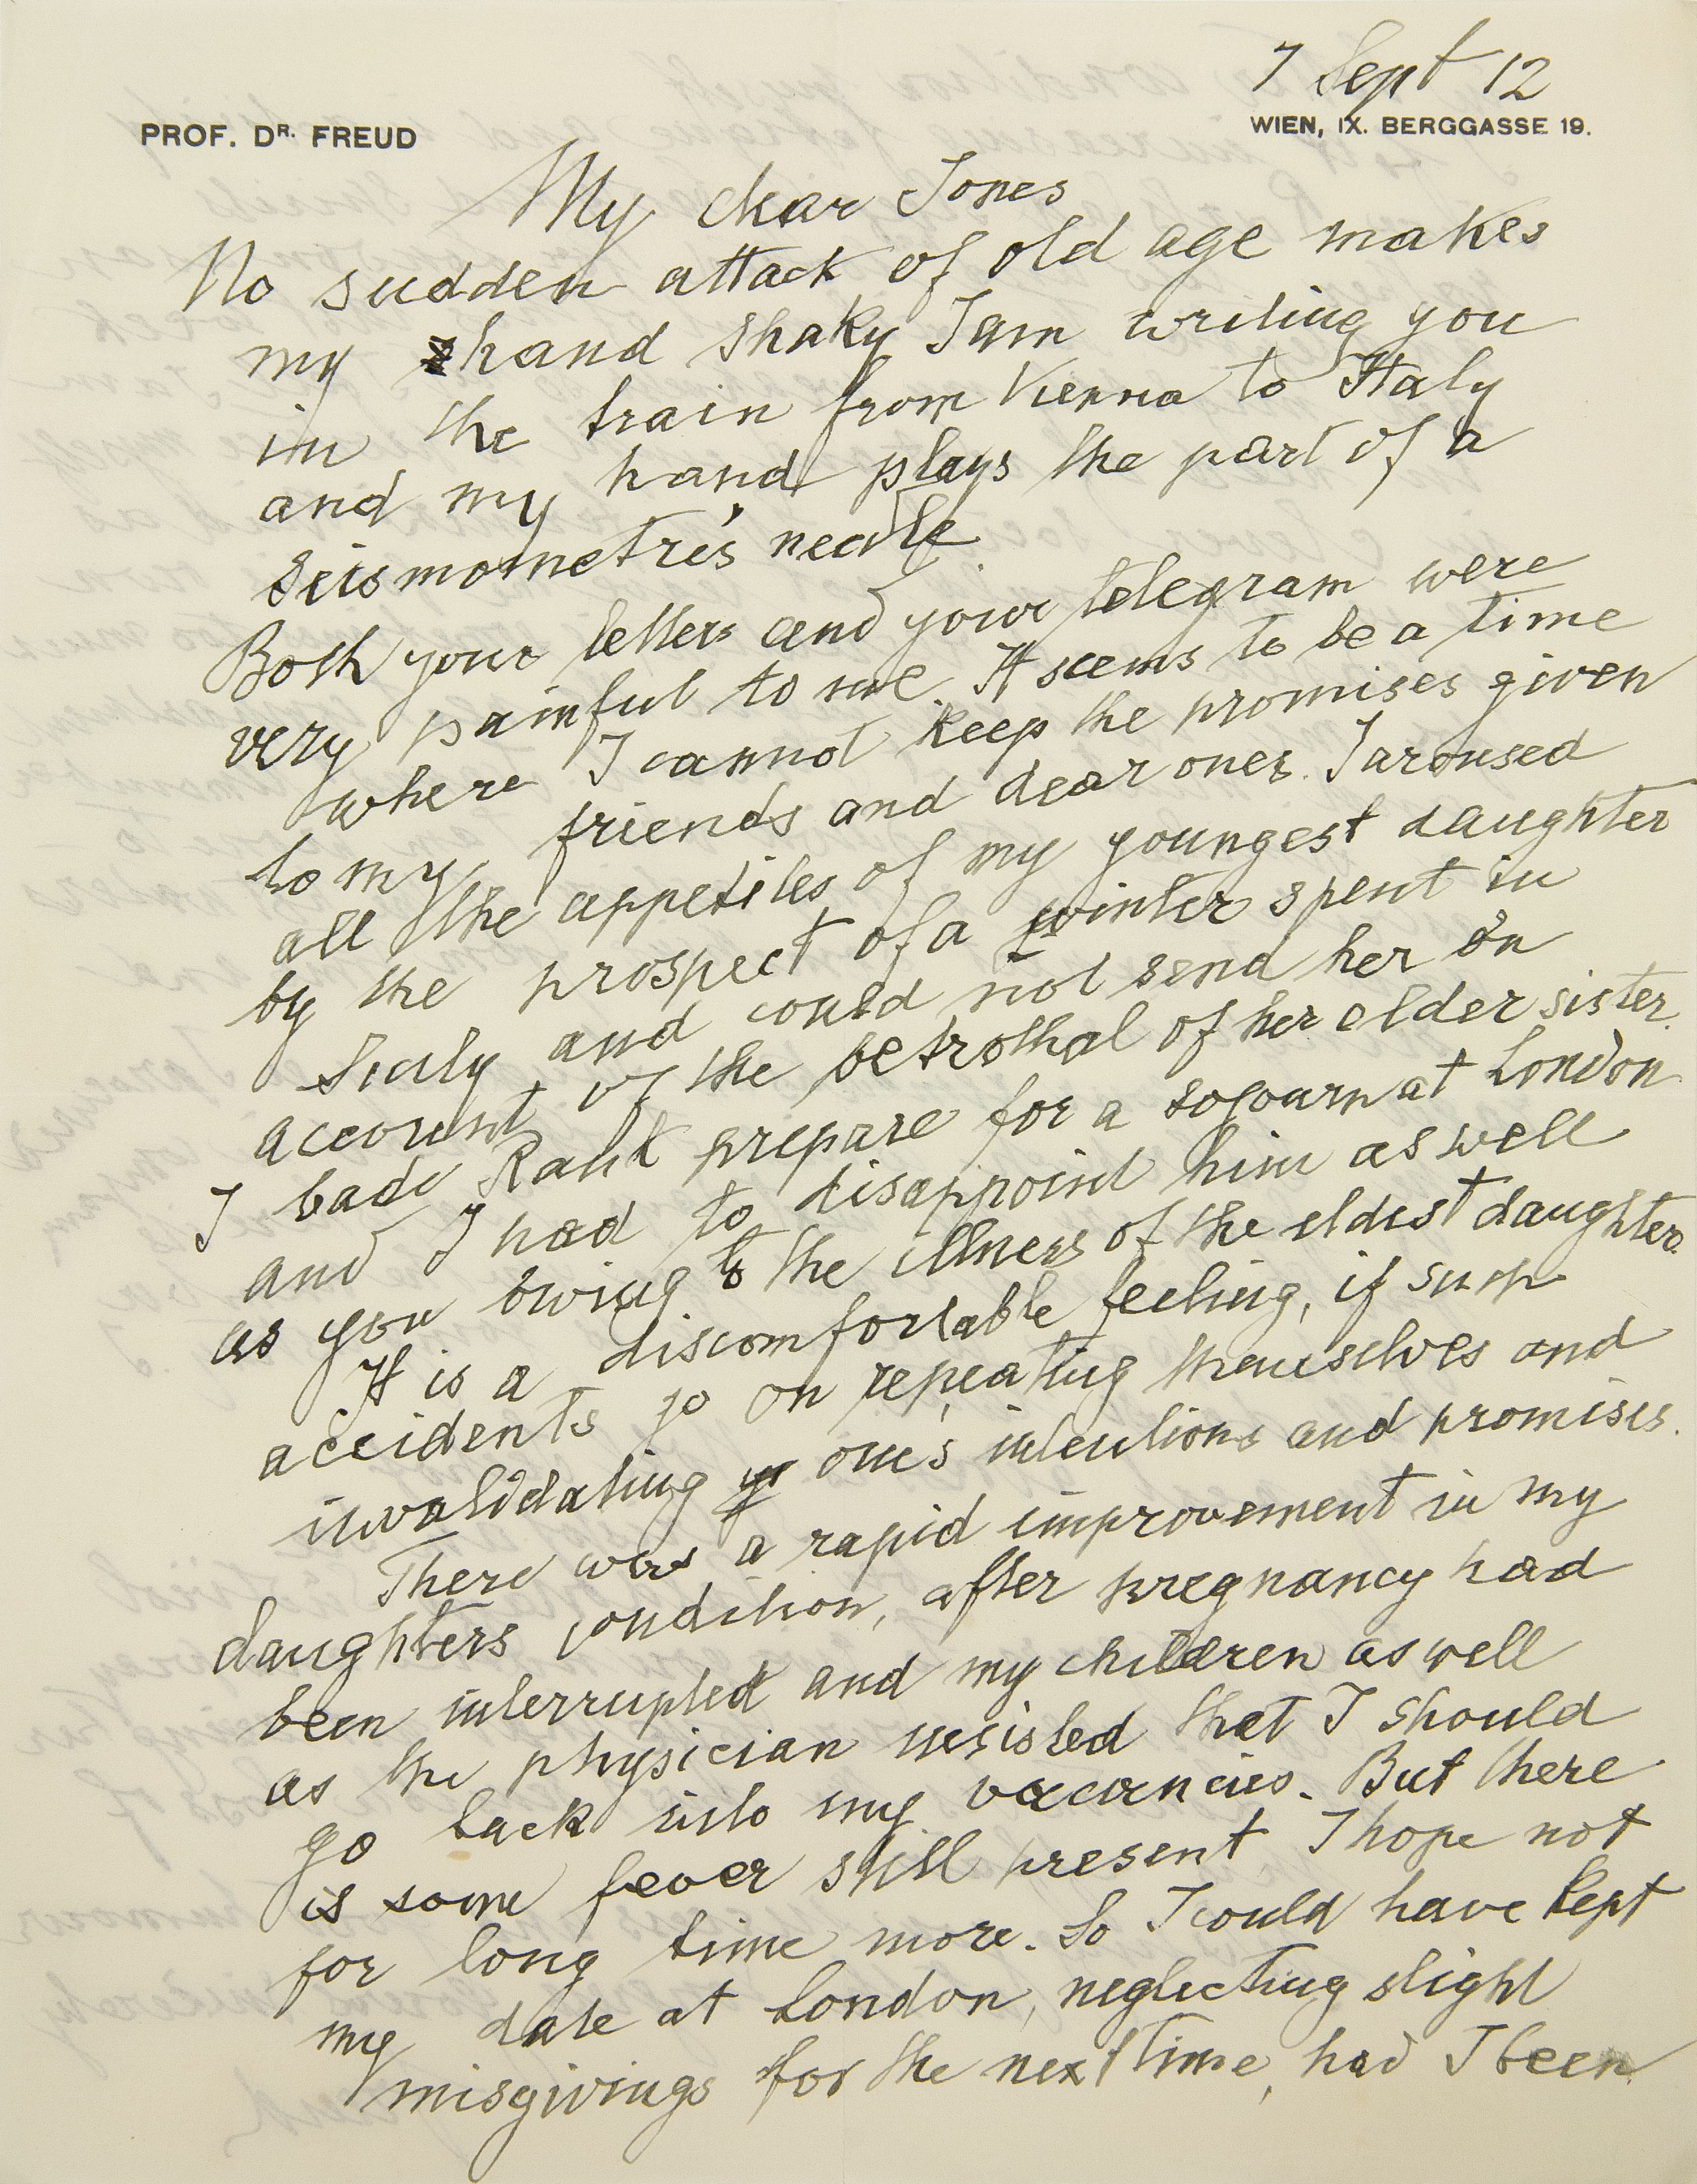 7 Sept 12
PROF. DR. FREUD
WIEN, IX. BERGGASSE 19.
My dear Jones
No sudden attack of old age makes
my hand shaky I am writing you
in the train from Vienna to Italy
and my hand plays the part of a
seismometre's needle
Both your letters and your telegram were
very painful to me. It seems to be a time
where I cannot keep the promises given
to my friends and dear ones. I aroused
all the appetites of my youngest daughter
by the prospect of a winter spent in
Sicily and could not send her on
account of the betrothal of her elder sister.
I bade Rank prepare for a sojourn at London
and I had to disappoint him as well
as you owing to the illness of the eldest daughter.
It is a discomfortable feeling, if such
accidents go on repeating themselves and
invalidating one's intentions and promises.
There was a rapid improvement in my
daughters condition, after pregnancy had
been interrupted and my children as well
as the physician insisted that I should
go back into my vacancies. But there
is some fever still present, I hope not
for long time more. So I could have kept
my date at London, neglecting slight
misgivings for the next time, had I been